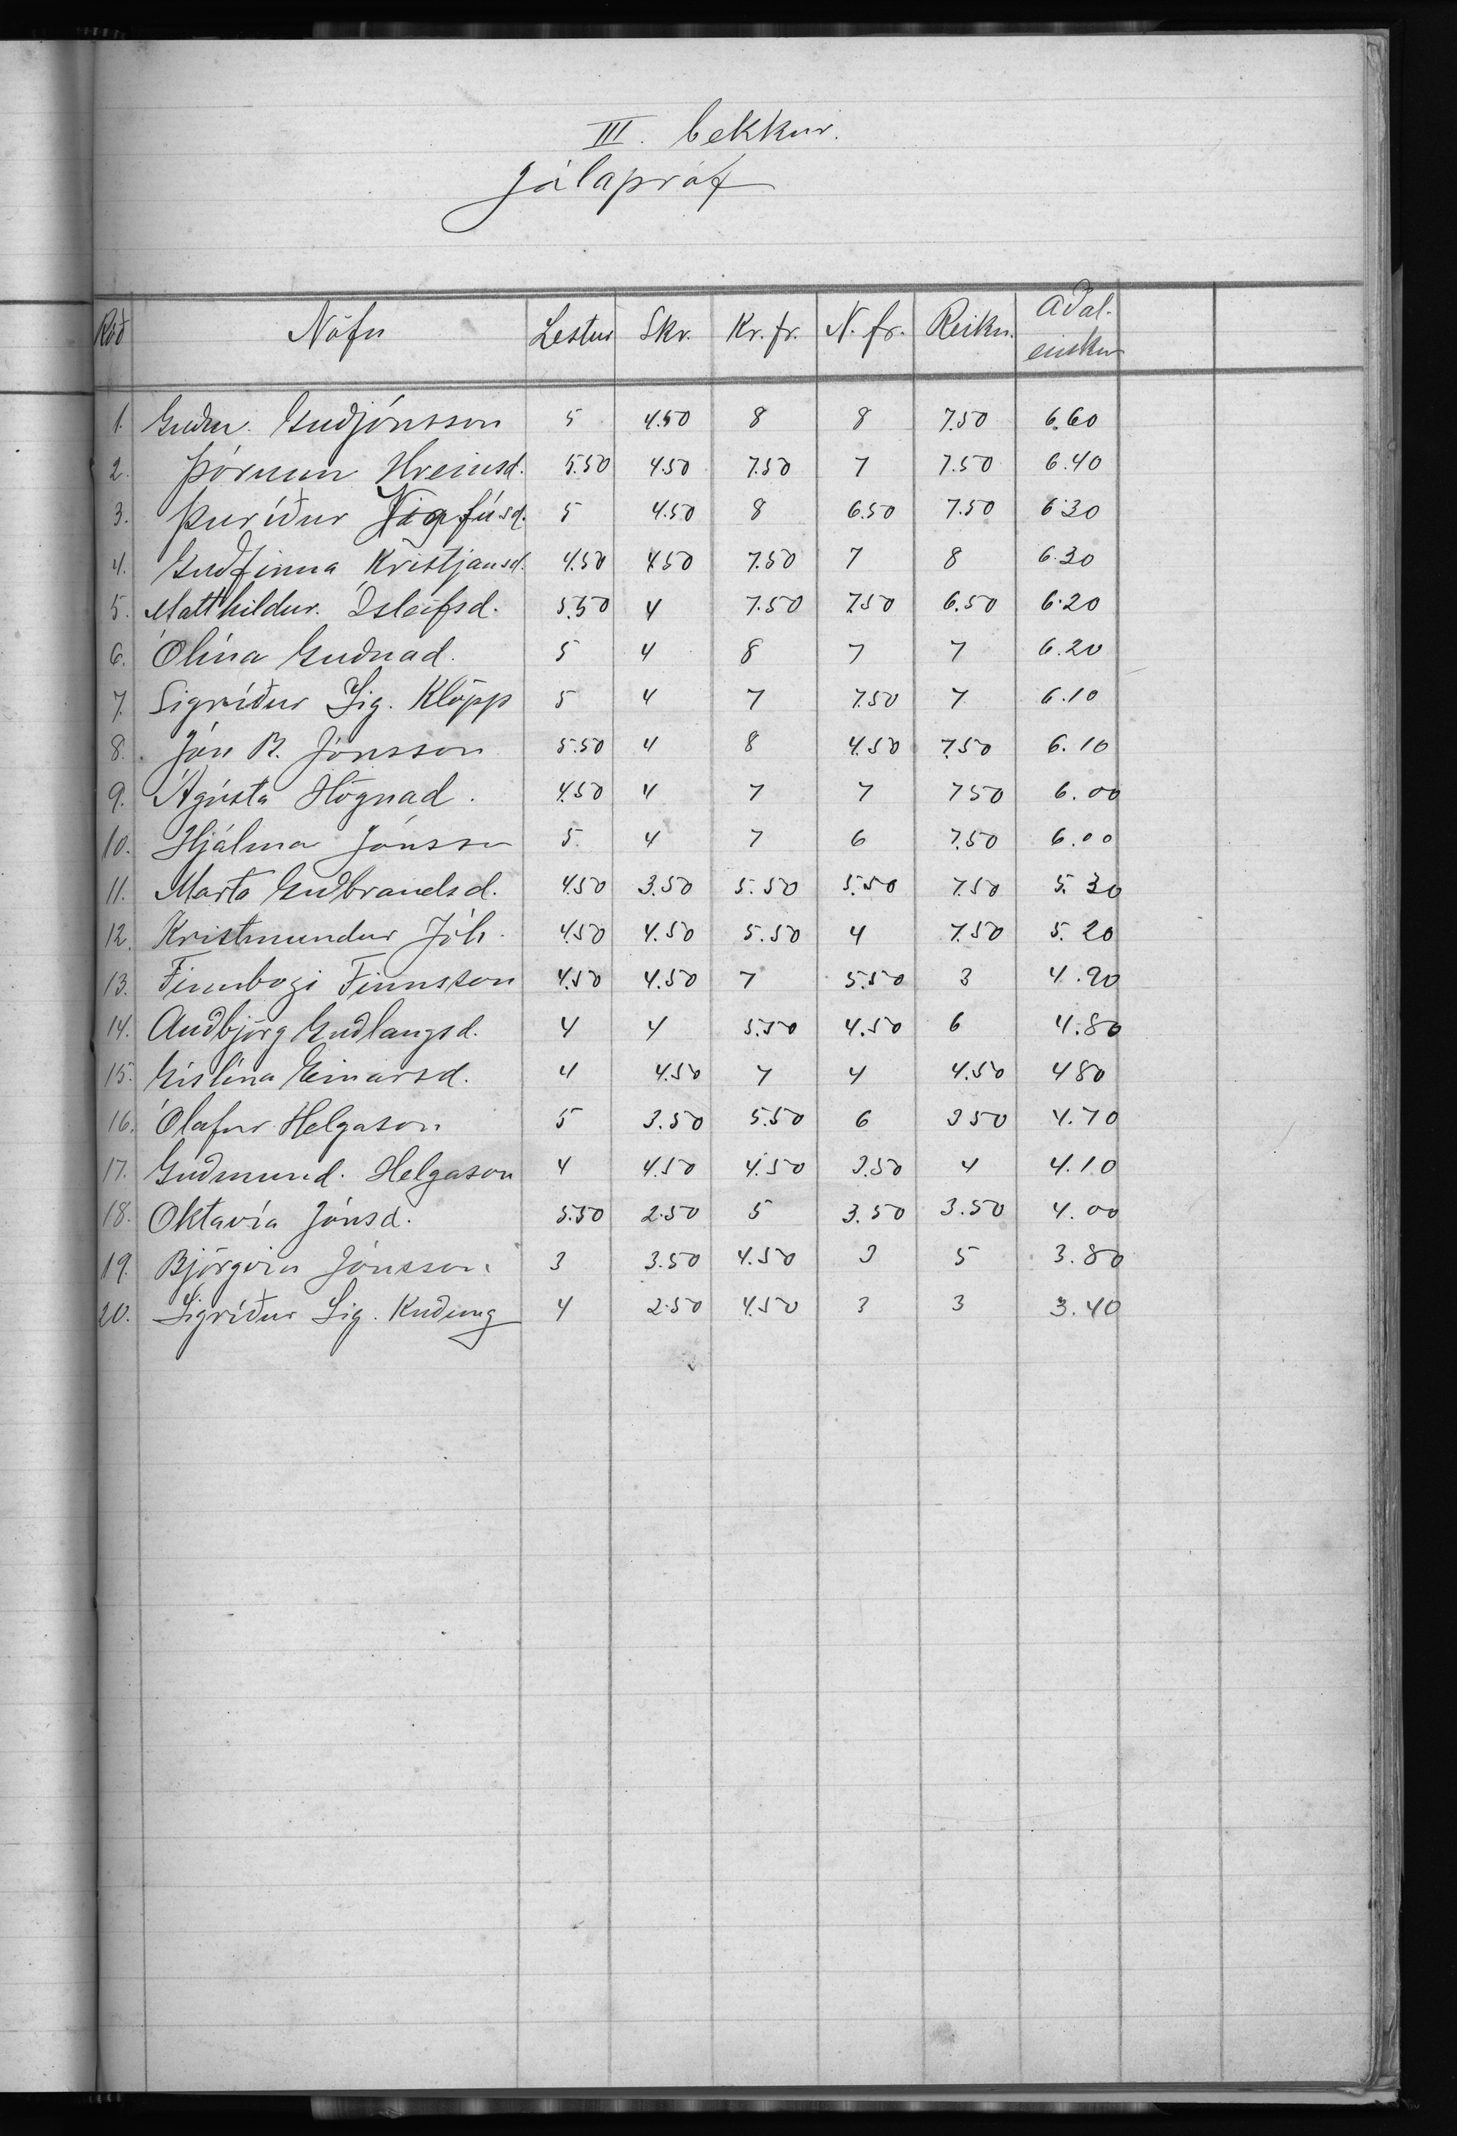 III. bekkur.
Jólapróf
Röð Nöfn Lestur Skr. Kr. fr. N. fr. Reikn. Aðal-einkun
1. Guðm. Guðjónsson 5 4.50 8 8 7.50 6.60
2. Þórunn Hreinsd. 5.50 4.50 7.50 7 7.50 6.40
3. Þuríður Vigfúsd. 5 4.50 8 6.50 7.50 6.30
4. Guðfinna Kristjánsd. 4.50 4.50 7.50 7 8 6.30
5. Matthildur Ísleifsd. 5.50 4 7.50 7.50 6.50 6.20
6. Ólína Guðnad. 5 4 8 7 7 6.20
7. Sigríður Sig. Klöpp 5 4 7 7.50 7 6.10
8. Jón B. Jónsson 5.50 4 8 4.50 7.50 6.10
9. Ágústa Högnad. 4.50 4 7 7 7 50 6.00
10. Hjálmar Jónsson 5 4 7 6 7.50 6.00
11. Marta Guðbrandsd. 4.50 3.50 5.50 5.50 7.50 5.30
12. Kristmundur Jóh. 4.50 4.50 5.50 4 7.50 5.20
13. Finnbogi Finnsson 4.50 4.50 7 5.50 3 4.90
14. Auðbjörg Guðlaugsd. 4 4 5.50 4.50 6 4.80
15. Gíslína Einarsd. 4 4.50 7 4 4.50 4 80
16. Ólafur Helgason 5 3.50 5.50 6 3 50 4.70
17. Guðmund. Helgason 4 4.50 4.50 3.50 4 4.10
18. Oktavía Jónsd. 5.50 2.50 5 3.50 3.50 4.00
19. Björgvin Jónsson. 3 3.50 4.50 3 5 3.80
20. Sigríður Sig. Kuðung 4 2.50 4.50 3 3 3.40